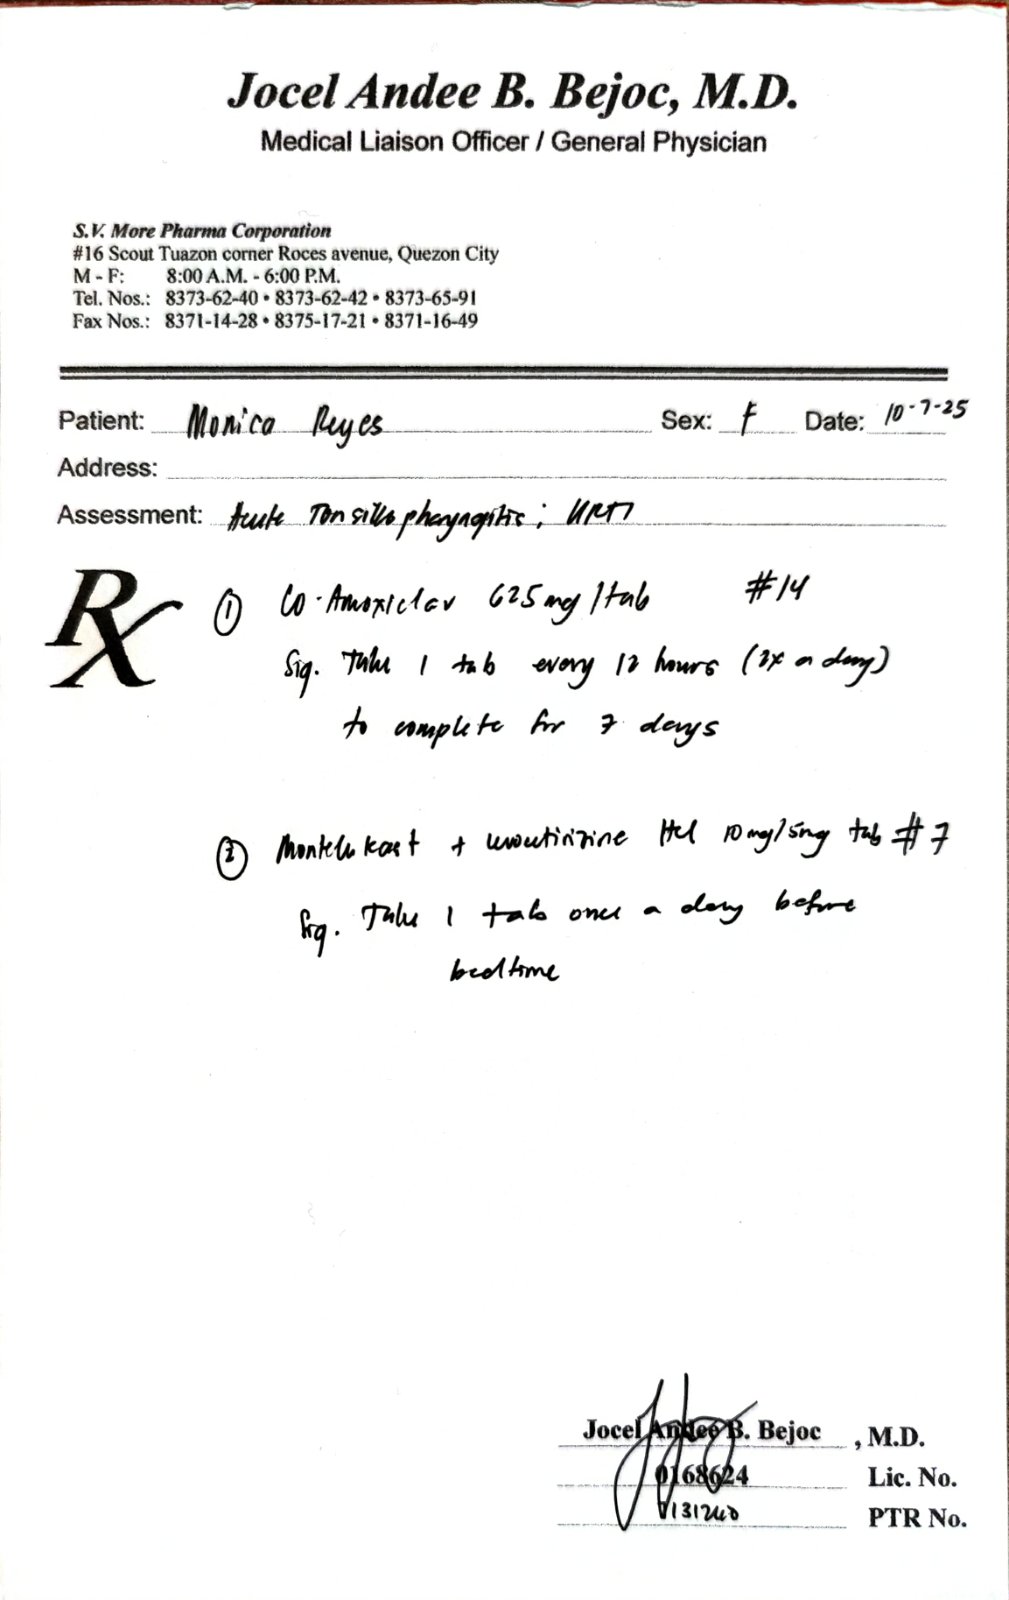 Jocel Andee B. Bejoc, M.D.
Medical Liaison Officer / General Physician
S.V. More Pharma Corporation
#16 Scout Tuazon corner Roces avenue, Quezon City
M - F: 8:00 A.M. - 6:00 P.M.
Tel. Nos.: 8373-62-40 • 8373-62-42 • 8373-65-91
Fax Nos.: 8371-14-28 • 8375-17-21 • 8371-16-49
Patient: Monica Reyes Sex: F Date: 10-7-25
Address:
Assessment: Acute Tonsillopharyngitis; URTI
Rx
① Co-Amoxiclav 625mg/tab #14
Sig. Take 1 tab every 12 hours (2x a day)
to complete for 7 days
② Montelukast + Levocetirizine HCl 10mg/5mg tab #7
Sig. Take 1 tab once a day before
bedtime
Jocel Andee B. Bejoc, M.D.
0168624 Lic. No.
PTR No.